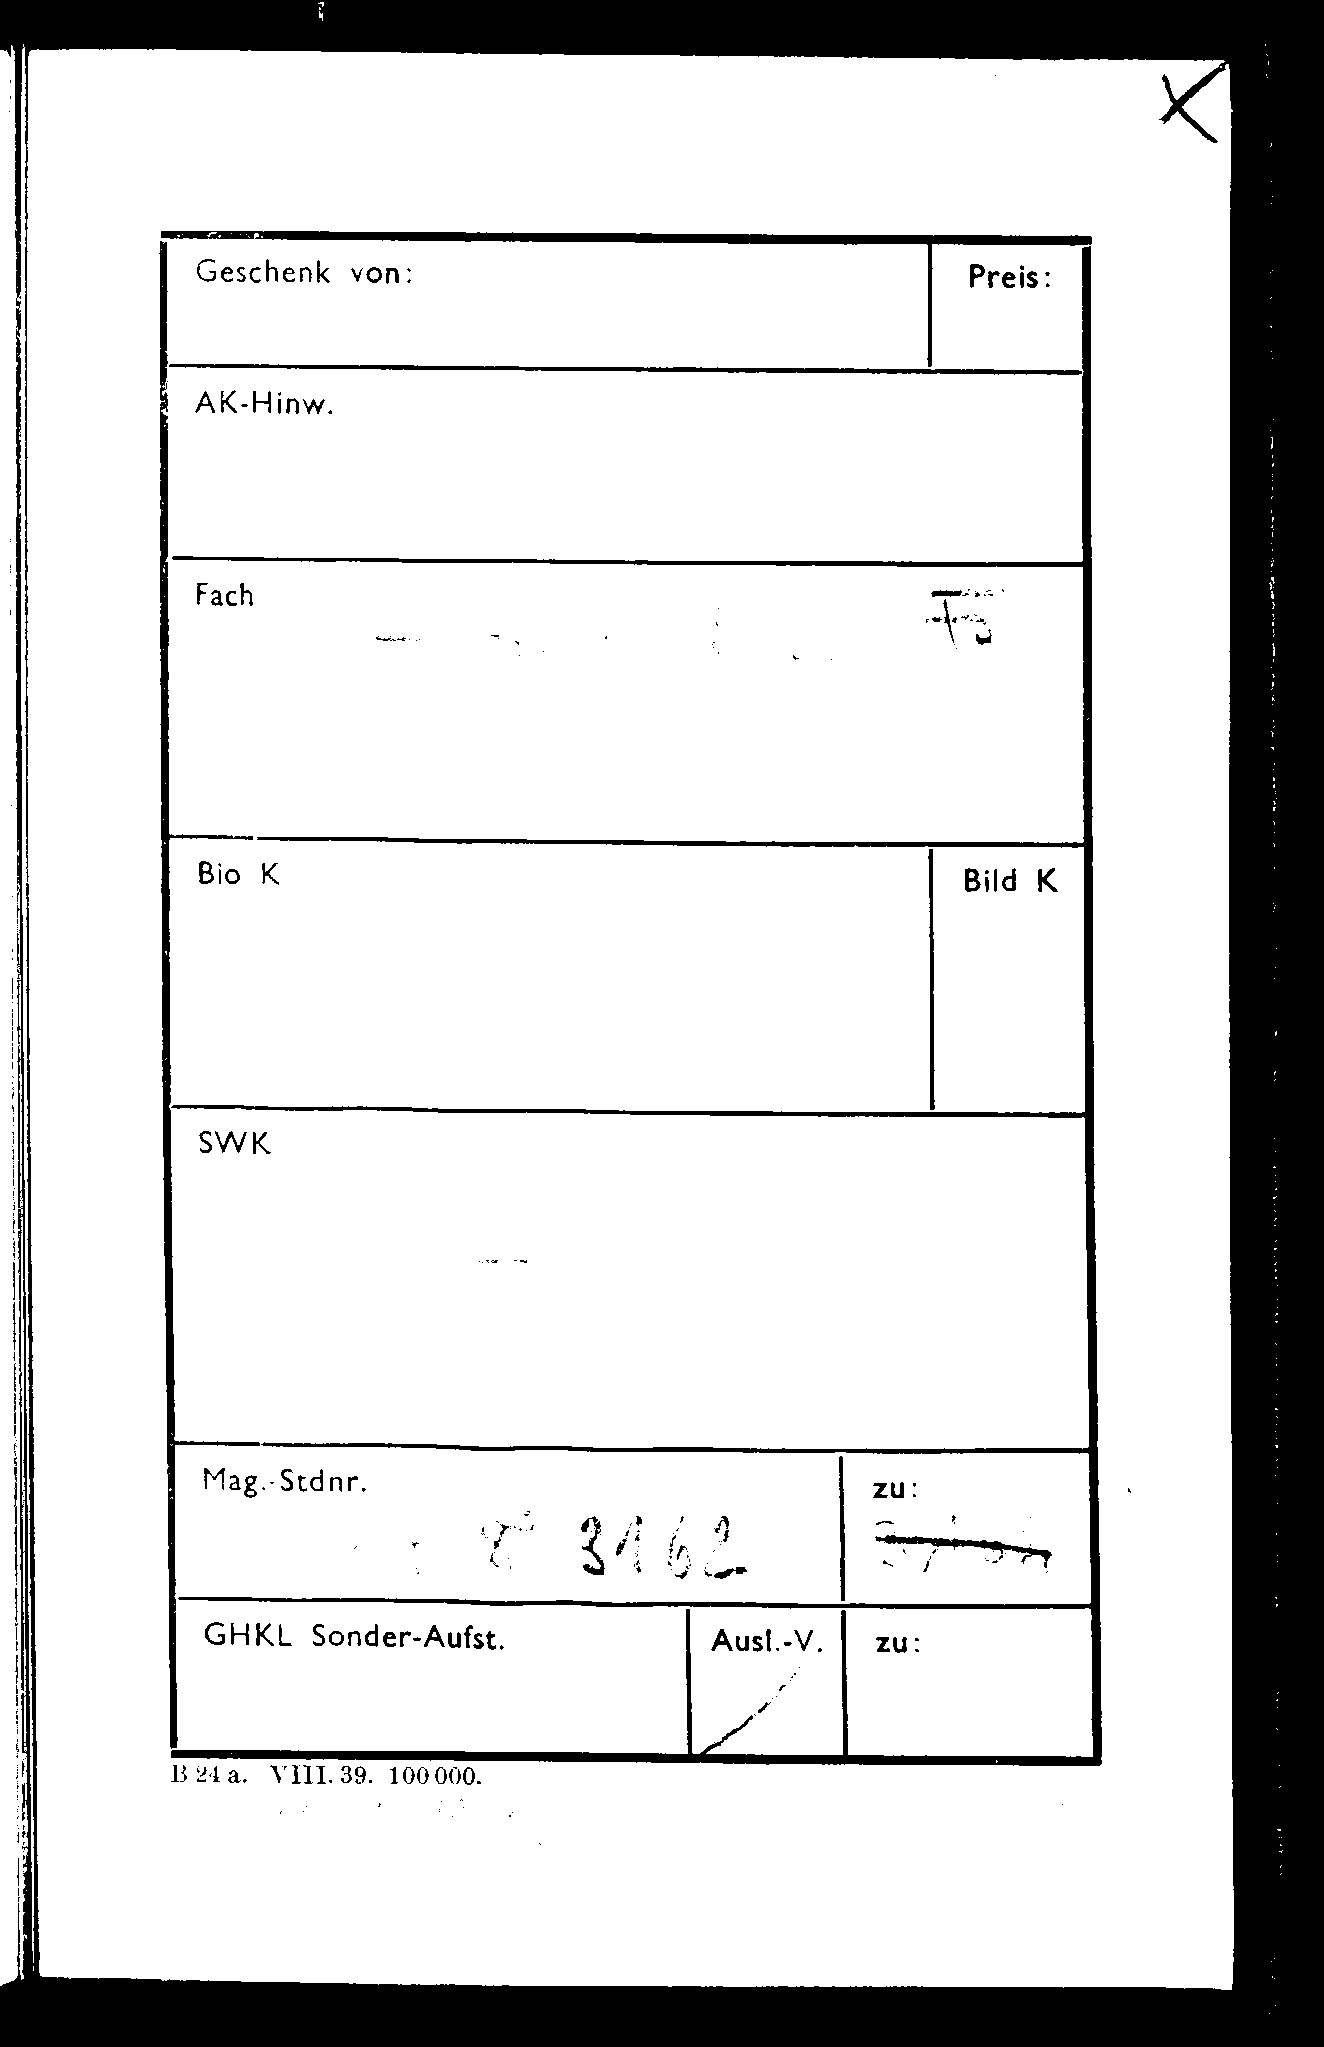 Geschenk von: Preis:
AK-Hinw.
Fach
Bio K Bild K
SWK
Mag.-Stdnr. zu:
3162
GHKL Sonder-Aufst. Ausl.-V. zu:
B 24 a. VIII. 39. 100 000.